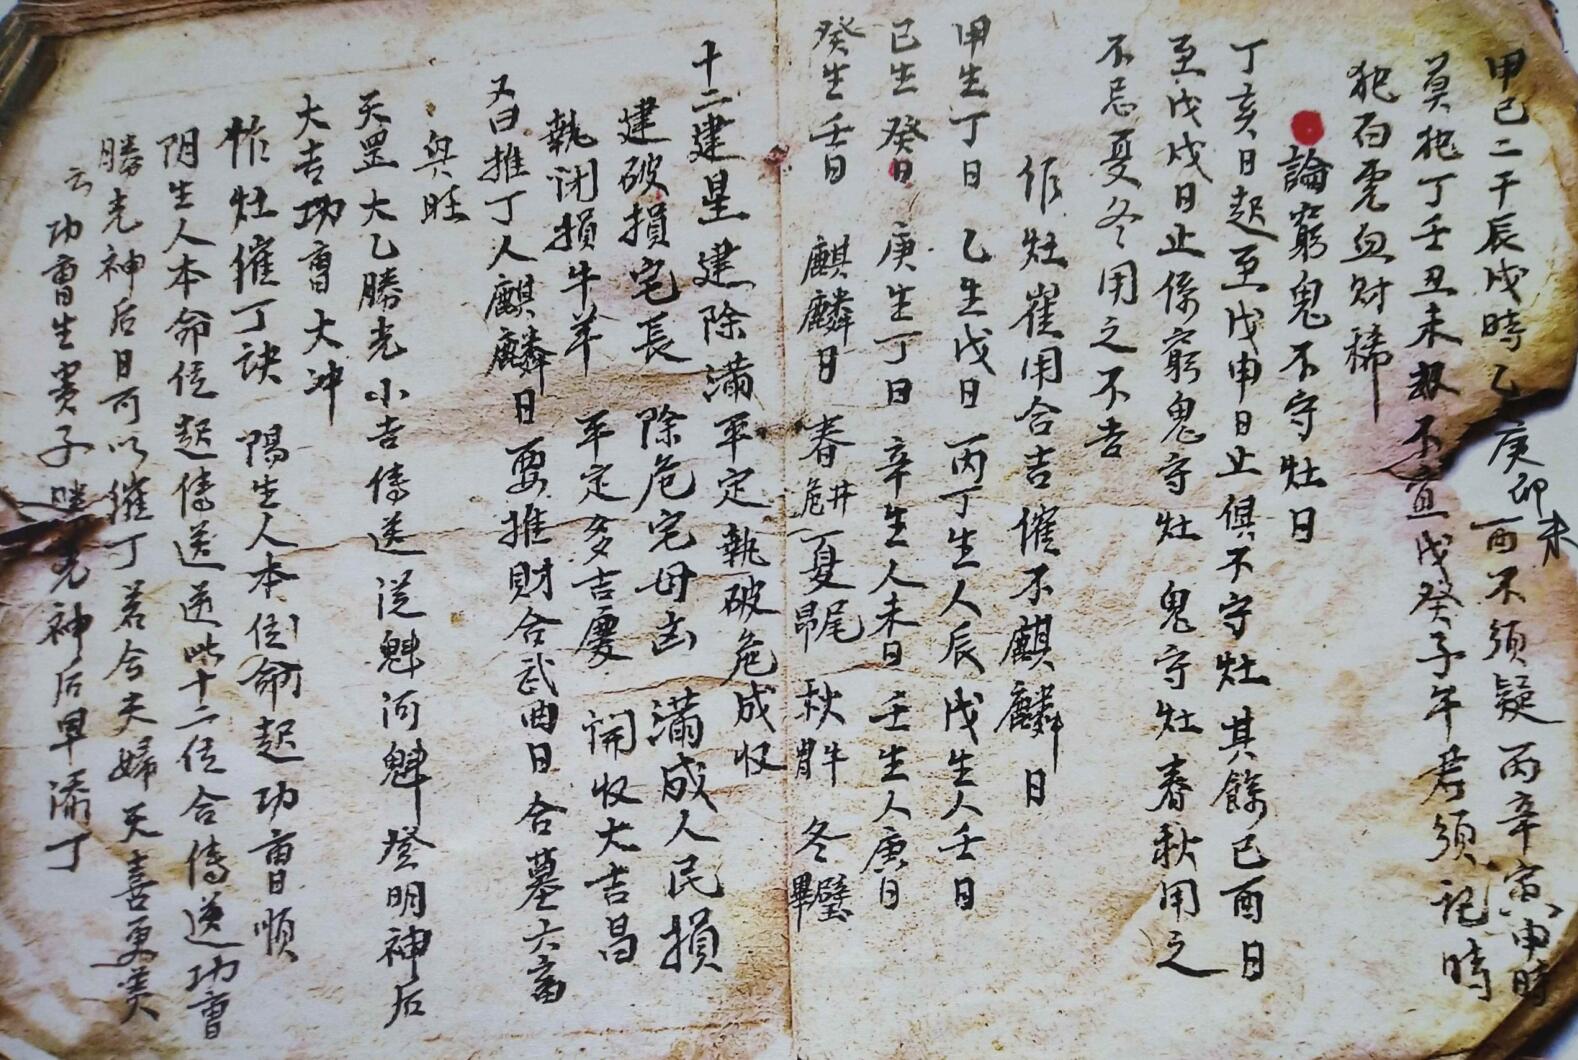 甲己二干辰戌時乙庚卯酉不須疑丙辛寅申時
未
莫犯丁壬丑未報不宜戊癸子午君須記時
犯百虎血財稀
論窮鬼不守灶日
丁亥日起至戊申日止俱不守灶其餘己酉日
至戊戌日止係窮鬼守灶鬼守灶春秋用之
不忌夏冬用之不吉
作灶崔用合吉催不麒麟日
甲生丁日乙生戊日丙丁生人辰戊生人壬日
己生癸日庚生丁日辛生人未日壬生人庚日
癸生壬日麒麟日春危井夏昴尾秋胃牛冬畢璧
十二建星建除滿平定執破危成收
建破損宅長除危宅母凶滿成人民損
執閉損牛羊平定多吉慶開收大吉昌
又曰推丁人麒麟日要推財合武曲日合墓六畜
興旺
天罡大乙勝光小吉傳送從魁河魁登明神后
大吉功曹大冲
作灶催丁訣陽生人本位命起功曹順
阴生人本命位起傳送逆此十二位合傳送功曹
勝光神后日可以催丁若合夫婦天喜更美
云功曹生貴子勝光神后早添丁